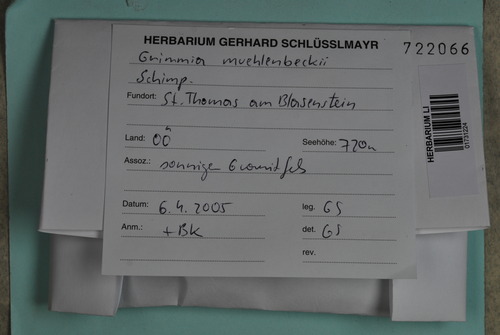 HERBARIUM GERHARD SCHLÜSSLMAYR
722066
Grimmia muehlenbeckii
Schimp.
Fundort: St. Thomas am Blasenstein
Land: OÖ Seehöhe: 720m
Assoz.: sonniger Granitfels
Datum: 6.4.2005 leg. GS
Anm.: +BK det. GS
rev.
HERBARIUM LI
01731224